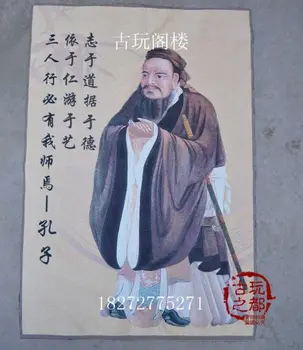 古玩阁楼
志于道据于德
依于仁游于艺
三人行必有我师焉－孔子
18272775271
古玩之都